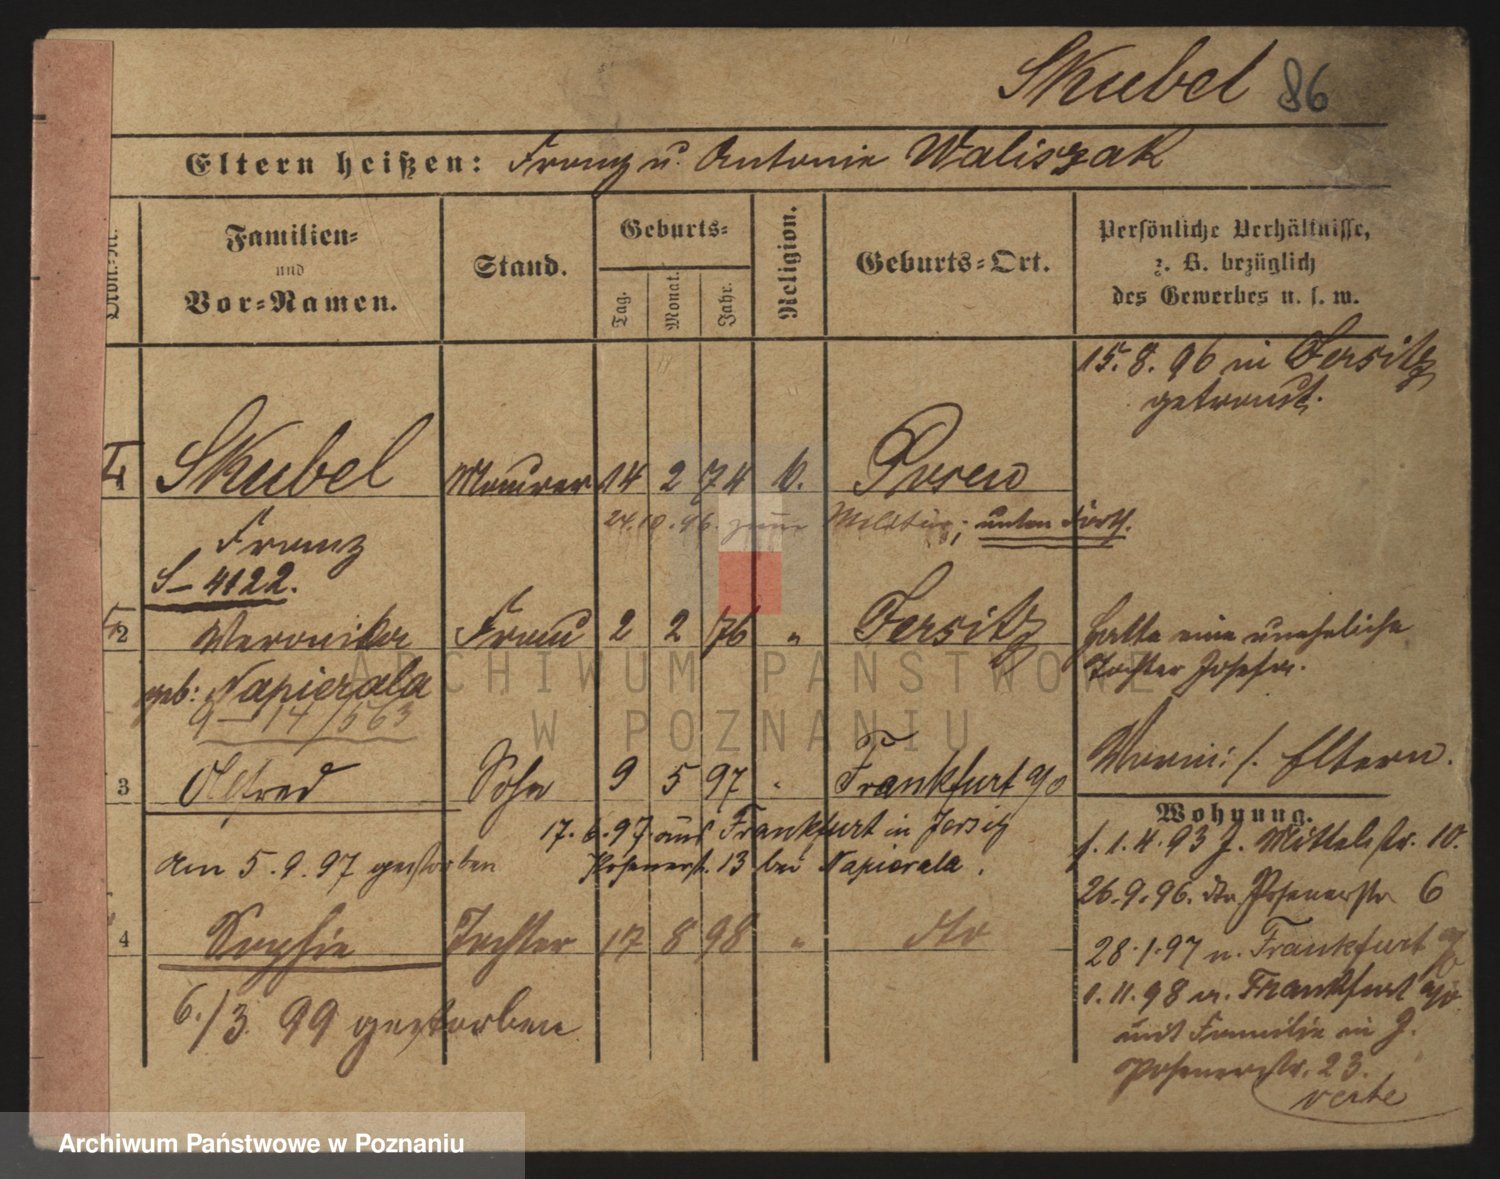 Skubel 86
Eltern heißen: Franz u. Antonie Waliszak
Ordn.-Nr.
Familien-
und
Vor-Namen.
Stand.
Geburts-
Tag.
Monat.
Jahr.
Religion.
Geburts-Ort.
Persönliche Verhältnisse,
z. B. bezüglich
des Gewerbes u. s. w.
15. 8. 96 in Jersitz
getraut.
1 Skubel Maurer 14 2 74 k. Posen
24.10.96. zum Militär; unten Forts.
Franz
S- 4122.
2 Veronika Frau 2 2 76 " Jersitz
Hatte eine uneheliche
Tochter Josefa.
geb: Napierala
9-14/563
3 Alfred Sohn 9 5 97 " Frankfurt a/o
Eltern.
Wohnung.
17. 6. 97 aus Frankfurt in Jersitz
Posenerst. 13 bei Napierala.
am 5. 9. 97 gestorben
1. 4. 93 J. Mittelstr. 10.
26. 9. 96. dto Posenerstr 6
4 Sophie Tochter 17 8 98 " dto
28.1.97 n. Frankfurt a/o
1. 11. 98 a. Frankfurt a/o
mit Familie in J.
Posenerstr. 23.
verte
6./3. 99 gestorben
ARCHIWUM PAŃSTWOWE
W POZNANIU
Archiwum Państwowe w Poznaniu